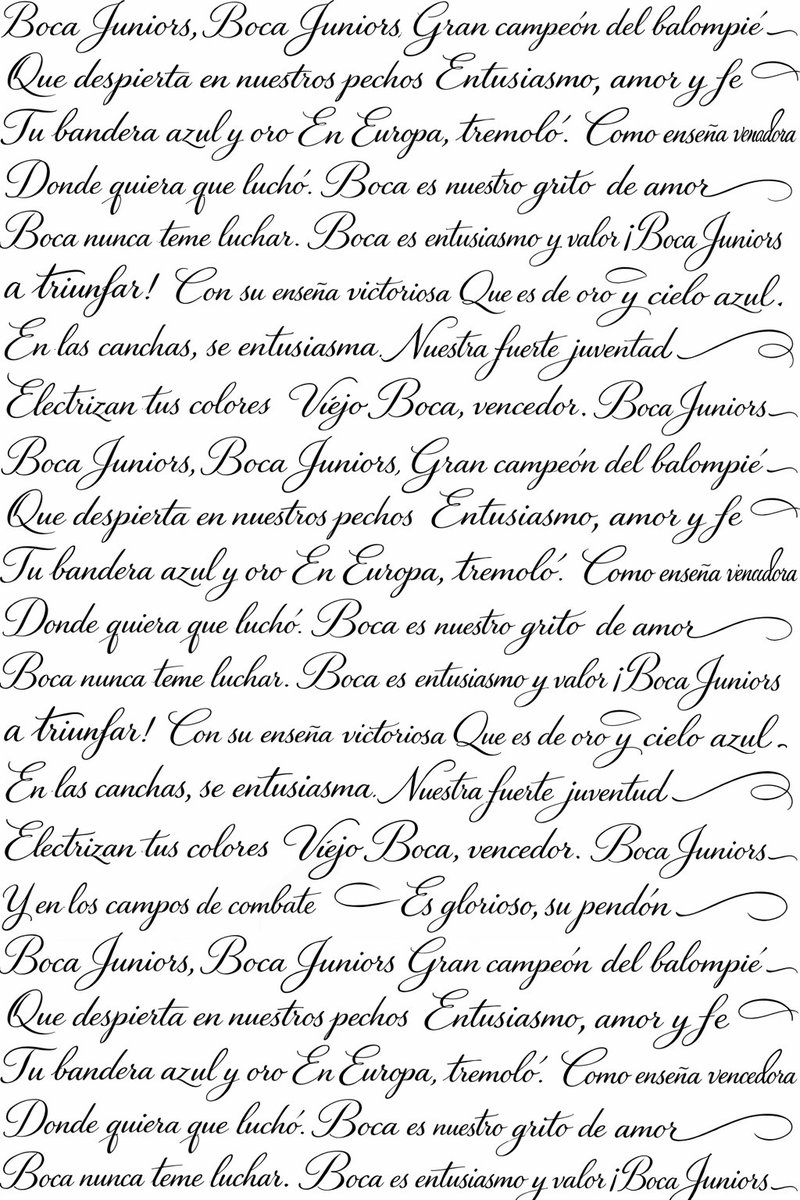 Boca Juniors, Boca Juniors, Gran campeón del balompié
Que despierta en nuestros pechos Entusiasmo, amor y fe
Tu bandera azul y oro En Europa, tremoló. Como enseña venadora
Donde quiera que luchó. Boca es nuestro grito de amor
Boca nunca teme luchar. Boca es entusiasmo y valor ¡Boca Juniors
a triunfar! Con su enseña victoriosa Que es de oro y cielo azul.
En las canchas, se entusiasma. Nuestra fuerte juventad
Electrizan tus colores Viejo Boca, vencedor. Boca Juniors
Boca Juniors, Boca Juniors, Gran campeón del balompié
Que despierta en nuestros pechos Entusiasmo, amor y fe
Tu bandera azul y oro En Europa, tremoló. Como enseña
Donde quiera que luchó. Boca es nuestro grito de amor
Boca nunca teme luchar. Boca es entusiasmo y valor ¡Boca Juniors
a triunfar! Con su enseña victoriosa Que es de oro y cielo azul.
En las canchas, se entusiasma. Nuestra fuerte juventud
Electrizan tus colores Viejo Boca, vencedor. Boca Juniors
Y en los campos de combate Es glorioso, su pendón
Boca Juniors, Boca Juniors Gran campeón del balompié
Que despierta en nuestros pechos Entusiasmo, amor y fe
Tu bandera azul y oro En Europa, tremoló. Como enseña vencedora
Donde quiera que luchó. Boca es nuestro grito de amor
Boca nunca teme luchar. Boca es entusiasmo y valor ¡Boca Juniors